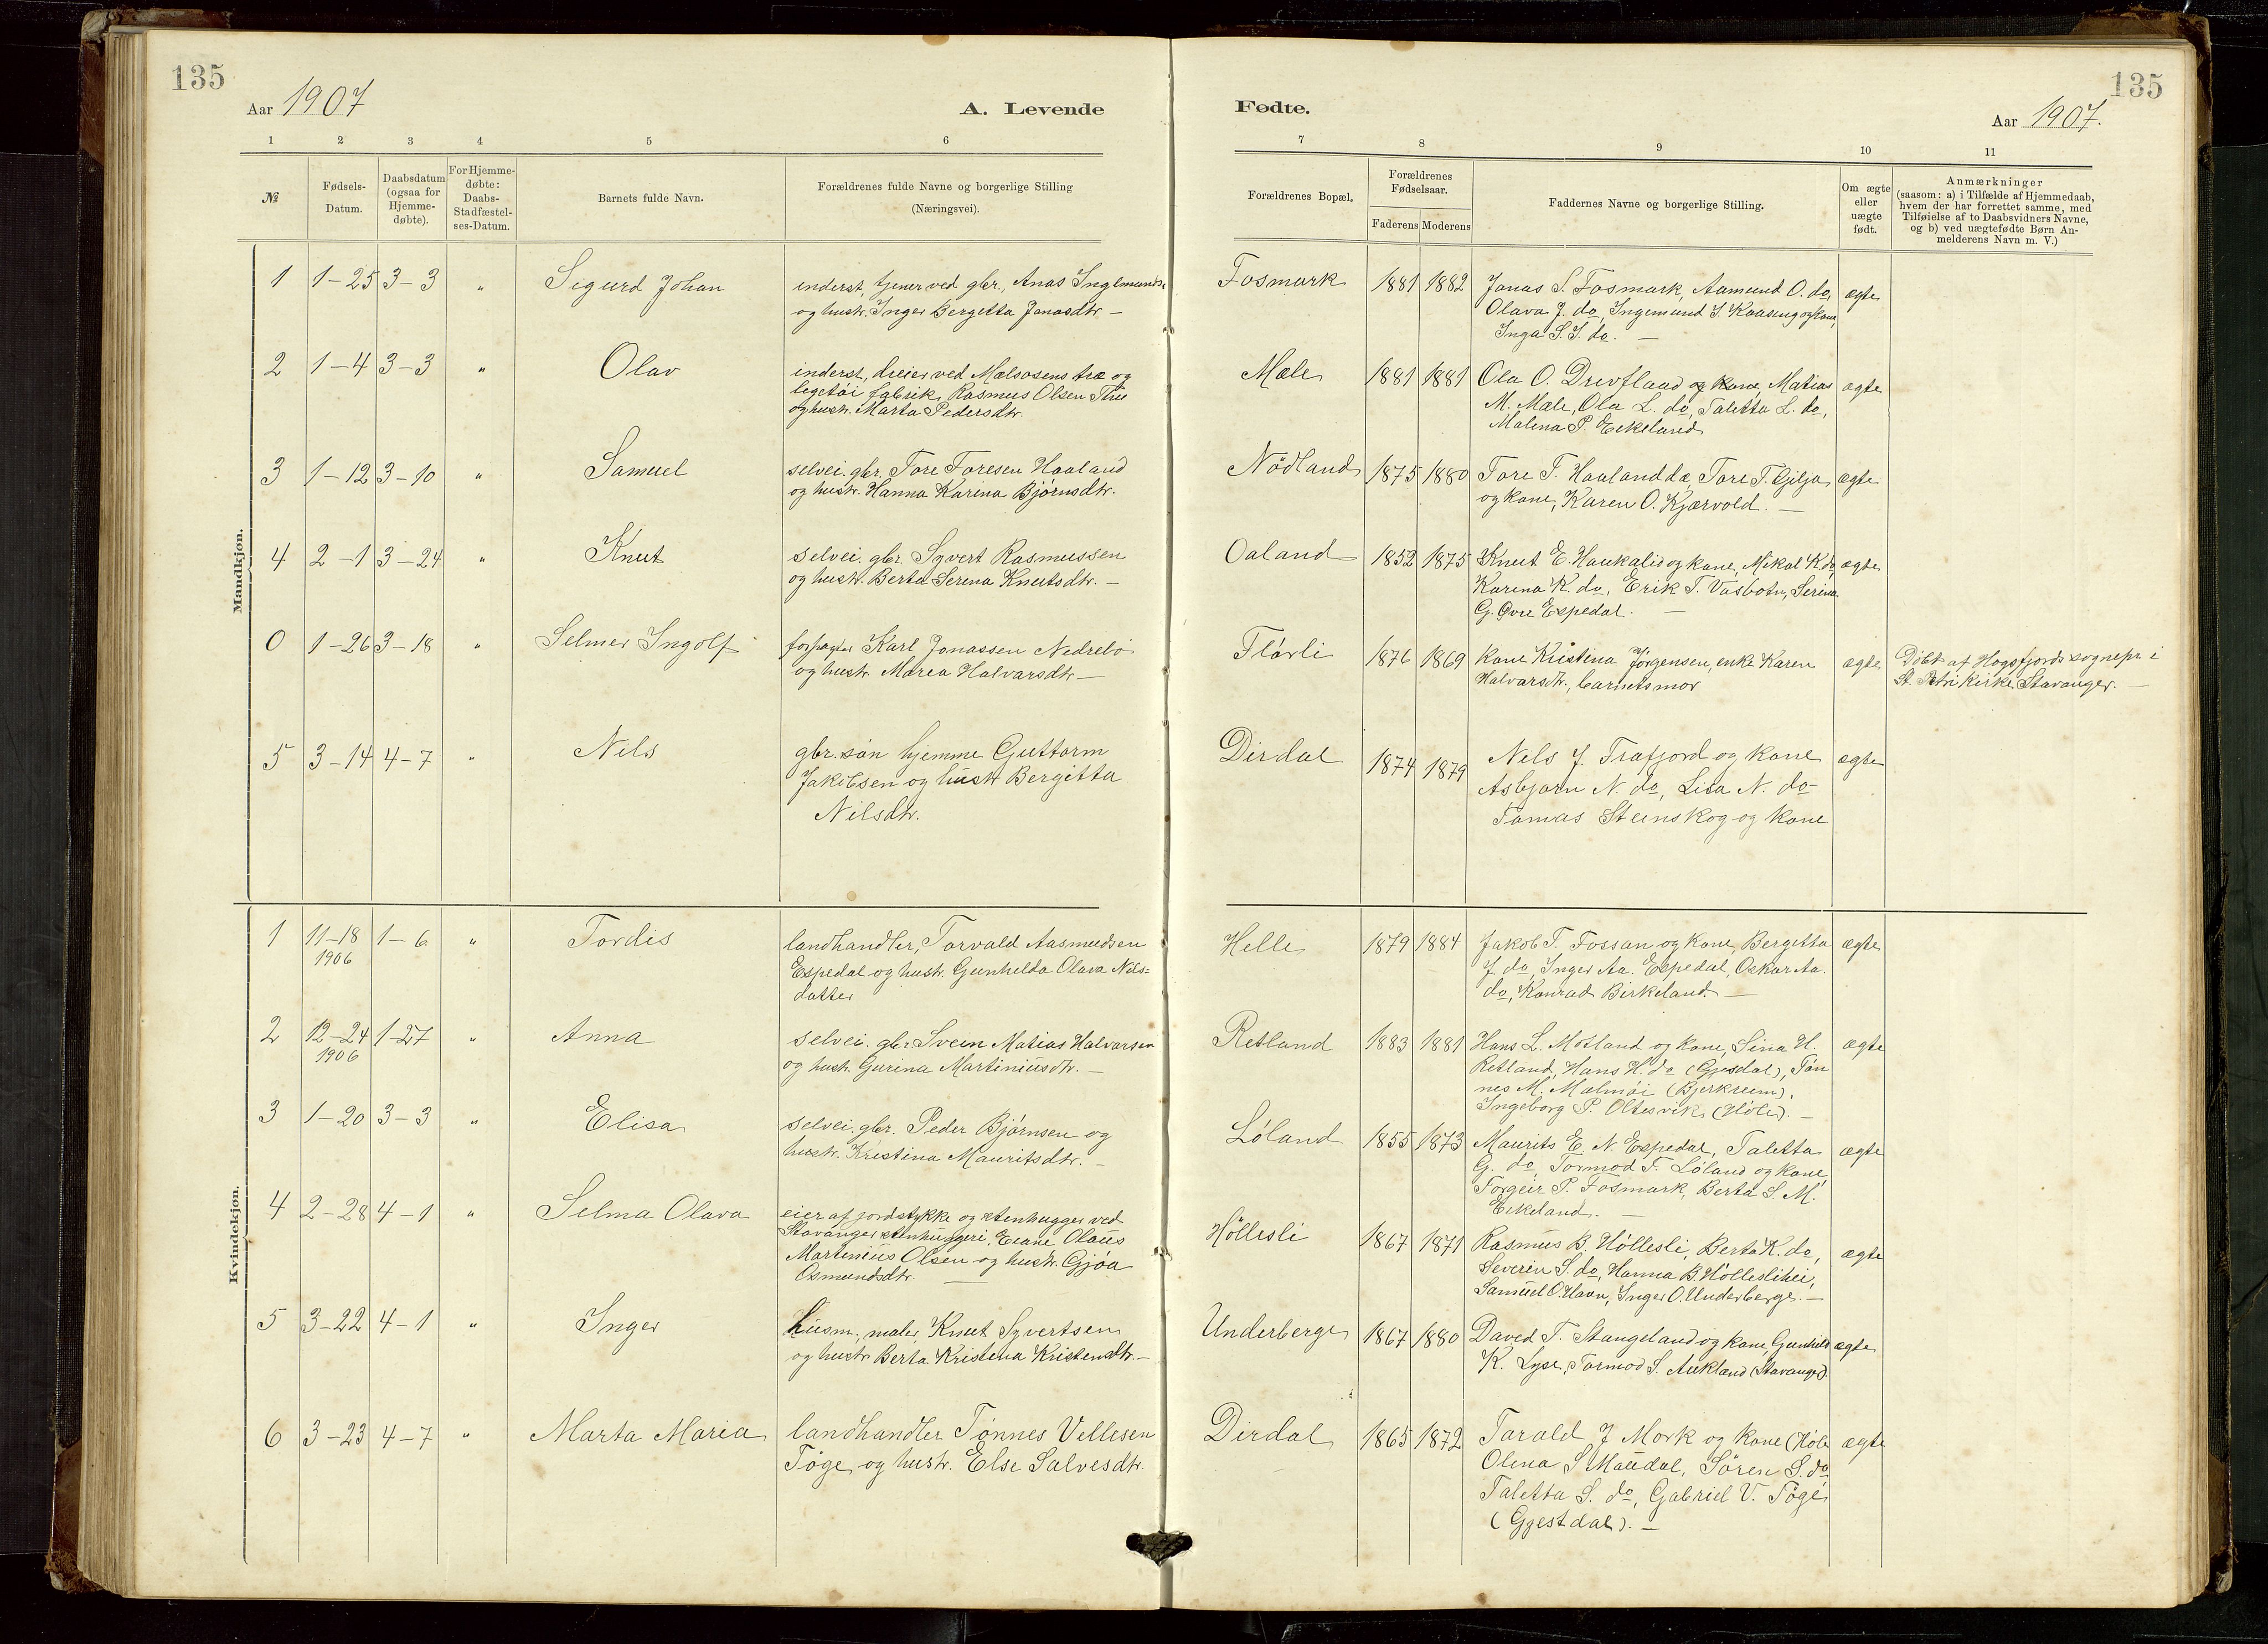 135
Aar 1907
A. Levende
1 2 3 4 5 6
№
Fødsels-
Datum.
Daabsdatum
(ogsaa for
Hjemme-
døbte).
For Hjemme-
døbte:
Daabs-
Stadfæstel-
ses-Datum.
Barnets fulde Navn.
Forældrenes fulde Navne og borgerlige Stilling
(Næringsvei).
Mandkjøn.
1 1-25 3-3 " Sigurd Johan
inderst, tjener ved gbr., Anas Ingemunds.
og hustr. Inger Bergetta Jonasdtr. —
2 1-4 3-3 " Olav
inderst, dreier ved Mælsosens træ og
legetöi fabrik, Rasmus Olsen Thu
og hustr. Marta Pedersdtr.
3 1-12 3-10 " Samuel
selvei. gbr. Tore Toresen Haaland
og hustr. Hanna Karina Björnsdtr.
4 2-1 3-24 " Knut
selvei. gbr. Syvert Rasmussen
og hustr. Berta Serina Knutsdtr. —
0 1-26 3-18 " Selmer Ingolf
forpagter Karl Jonassen Nedrebö
og hustr. Marea Halvarsdtr —
5 3-14 4-7 " Nils
gbr. sön hjemme Guttorm
Jakobsen og hustr Bergitta
Nilsdtr.
Kvindekjøn.
1 11-18 1-6 " Tordis
1906
landhandler, Torvald Aasmundsen
Espedal og hustr. Gunhelda Olava Nils=
datter
2 12-24 1-27 " Anna
1906
selvei. gbr Svein Matias Halvarsen
og hustr. Gurina Martiniusdtr. —
3 1-20 3-3 " Elisa
selvei. gbr. Peder Björnsen og
hustr. Kristina Mauritsdtr. —
4 2-28 4-1 " Selma Olava
eier af jordstykke og stenhugger ved
Stavanger stenhuggeri, Eiane Olaus
Martinius Olsen og hustr. Gjöa
Osmundsdtr. —
5 3-22 4-1 " Inger
Husm., maler, Knut Syvertsen
og hustr Berta Kristina Kristensdtr. —
6 3-23 4-7 " Marta Maria
landhandler Tönnes Vellesen
Töge og hustr. Else Salvesdtr.
135
Fødte.
Aar 1907.
7 8 9 10 11
Forældrenes Bopæl.
Forældrenes
Fødselsaar.
Faderens Moderens
Faddernes Navne og borgerlige Stilling.
Om ægte
eller
uægte
født.
Anmærkninger
(saasom: a) i Tilfælde af Hjemmedaab,
hvem der har forrettet samme, med
Tilføielse af to Daabsvidners Navne,
og b) ved uægtefødte Børn An-
melderens Navn m. V.)
Fosmark 1881 1882 Jonas S. Fosmark, Aamund O. do, ægte
Olava J. do, Ingemund S Kaasen og kone,
Inga S. I. do. —
Mæle 1881 1881 Ola O. Drevfland og kone, Matias ægte
M. Mæle, Ola L. do, Taletta L. do,
Malena P. Eikeland
Nödland 1875 1880 Tore T. Haaland do, Tore T. Gjilja ægte
og kone, Karen O. Kjærvold. —
Oaland 1852 1875 Knut E. Haukalid og kone, Mikal K do, ægte
Karina K. do, Erik T. Vasbotn, Serina
G. Övre Espedal. —
Flörli 1876 1869 Kone Kristina Jörgensen, enke Karen ægte
Halvarsdtr., barnets mor
Döbt af Högsfjords sognepr i
St. Petri kirke Stavanger. —
Dirdal 1874 1879 Nils J. Frafjord og kone ægte
Asbjørn N. do, Lisa N. do
Tomas Steinskog og kone
Helle 1879 1884 Jakob T. Fossan og kone, Bergetta ægte
J. do, Inger Aa. Espedal, Oskar Aa.
do, Konrad Birkeland. —
Retland 1883 1881 Hans L. Motland og kone, Sina H. ægte
Retland, Hans H. do (Gjesdal), Tön
nes M. Malmöi (Bjerkreim),
Ingeborg P. Oltesvik (Höle). —
Löland 1855 1873 Maurits E. N. Espedal, Taletta ægte
G. do, Tormod T. Löland og kone,
Torgeir P. Fosmark, Berta S. M.
Eikeland. —
Höllesli 1867 1871 Rasmus B. Höllesli, Berta K. do, ægte
Severin S. do, Hanna B. Hölleslihei,
Samuel O. Havn, Inger O. Underberge. —
Underberge 1867 1880 David T. Stangeland og kone, Gunhild ægte
K. Lyse, Tormod S. Aukland (Stavanger).
Dirdal 1865 1872 Tarald J Mork og kone (Höle ægte
Olena S Maudal, Sören S. do
Taletta S. do, Gabriel V. Töge
(Gjestdal). —